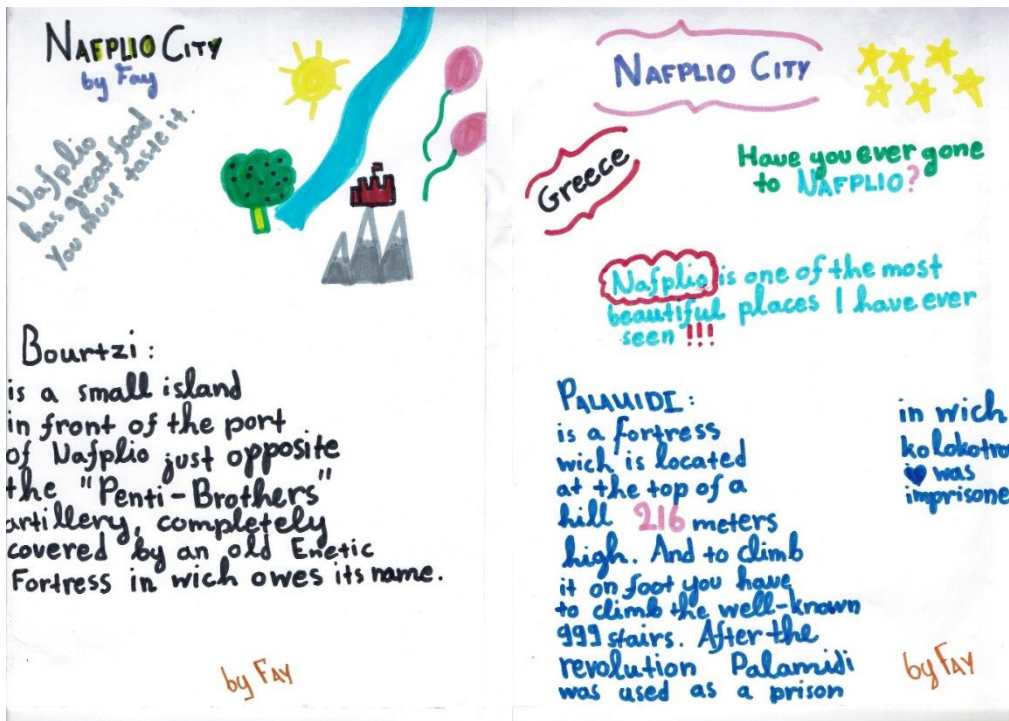 NAFPLIO CITY
by Fay
Nafplio
has great food
You must taste it.
Bourtzi :
is a small island
in front of the port
of Nafplio just opposite
the "Penti-Brothers"
artillery, completely
covered by an old Enetic
Fortress in wich owes its name.
by FAY
NAFPLIO CITY
Greece
Have you ever gone
to NAFPLIO?
Nafplio is one of the most
beautiful places I have ever
seen !!!
PALAMIDI :
is a fortress
wich is located
at the top of a
hill 216 meters
high. And to climb
it on foot you have
to climb the well-known
999 stairs. After the
revolution Palamidi
was used as a prison
in wich
kolokotro
was
imprisone
by FAY